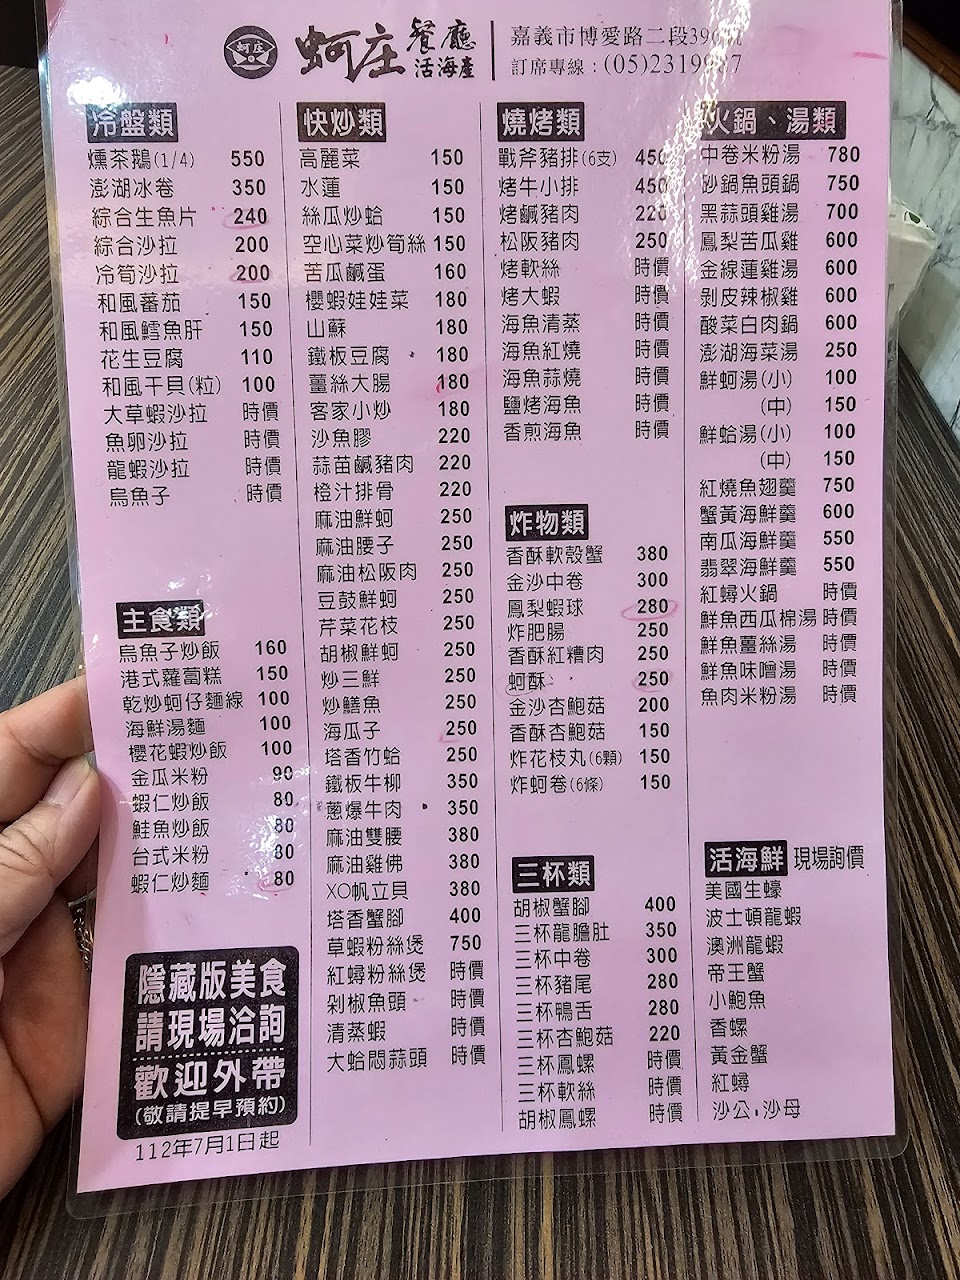 蚵庄
蚵庄 餐廳
活海產
嘉義市博愛路二段39
訂席專線：(05)2319
冷盤類
燻茶鵝(1/4) 550
澎湖冰卷 350
綜合生魚片 240
綜合沙拉 200
冷筍沙拉 200
和風蕃茄 150
和風鱈魚肝 150
花生豆腐 110
和風干貝(粒) 100
大草蝦沙拉 時價
魚卵沙拉 時價
龍蝦沙拉 時價
烏魚子 時價
主食類
烏魚子炒飯 160
港式蘿蔔糕 150
乾炒蚵仔麵線 100
海鮮湯麵 100
櫻花蝦炒飯 100
金瓜米粉 90
蝦仁炒飯 80
鮭魚炒飯 80
台式米粉 80
蝦仁炒麵 80
隱藏版美食
請現場洽詢
歡迎外帶
(敬請提早預約)
112年7月1日起
快炒類
高麗菜 150
水蓮 150
絲瓜炒蛤 150
空心菜炒筍絲 150
苦瓜鹹蛋 160
櫻蝦娃娃菜 180
山蘇 180
鐵板豆腐 180
薑絲大腸 180
客家小炒 180
沙魚膠 220
蒜苗鹹豬肉 220
橙汁排骨 220
麻油鮮蚵 250
麻油腰子 250
麻油松阪肉 250
豆鼓鮮蚵 250
芹菜花枝 250
胡椒鮮蚵 250
炒三鮮 250
炒鱔魚 250
海瓜子 250
塔香竹蛤 250
鐵板牛柳 350
蔥爆牛肉 350
麻油雙腰 380
麻油雞佛 380
XO帆立貝 380
塔香蟹腳 400
草蝦粉絲煲 750
紅蟳粉絲煲 時價
剁椒魚頭 時價
清蒸蝦 時價
大蛤悶蒜頭 時價
燒烤類
戰斧豬排(6支) 450
烤牛小排 450
烤鹹豬肉 220
松阪豬肉 250
烤軟絲 時價
烤大蝦 時價
海魚清蒸 時價
海魚紅燒 時價
海魚蒜燒 時價
鹽烤海魚 時價
香煎海魚 時價
炸物類
香酥軟殼蟹 380
金沙中卷 300
鳳梨蝦球 280
炸肥腸 250
香酥紅糟肉 250
蚵酥 250
金沙杏鮑菇 200
香酥杏鮑菇 150
炸花枝丸(6顆) 150
炸蚵卷(6條) 150
三杯類
胡椒蟹腳 400
三杯龍膽肚 350
三杯中卷 300
三杯豬尾 280
三杯鴨舌 280
三杯杏鮑菇 220
三杯鳳螺 時價
三杯軟絲 時價
胡椒鳳螺 時價
火鍋、湯類
中卷米粉湯 780
砂鍋魚頭鍋 750
黑蒜頭雞湯 700
鳳梨苦瓜雞 600
金線蓮雞湯 600
剝皮辣椒雞 600
酸菜白肉鍋 600
澎湖海菜湯 250
鮮蚵湯(小) 100
(中) 150
鮮蛤湯(小) 100
(中) 150
紅燒魚翅羹 750
蟹黃海鮮羹 600
南瓜海鮮羹 550
翡翠海鮮羹 550
紅蟳火鍋 時價
鮮魚西瓜棉湯 時價
鮮魚薑絲湯 時價
鮮魚味噌湯 時價
魚肉米粉湯 時價
活海鮮 現場詢價
美國生蠔
波士頓龍蝦
澳洲龍蝦
帝王蟹
小鮑魚
香螺
黃金蟹
紅蟳
沙公，沙母